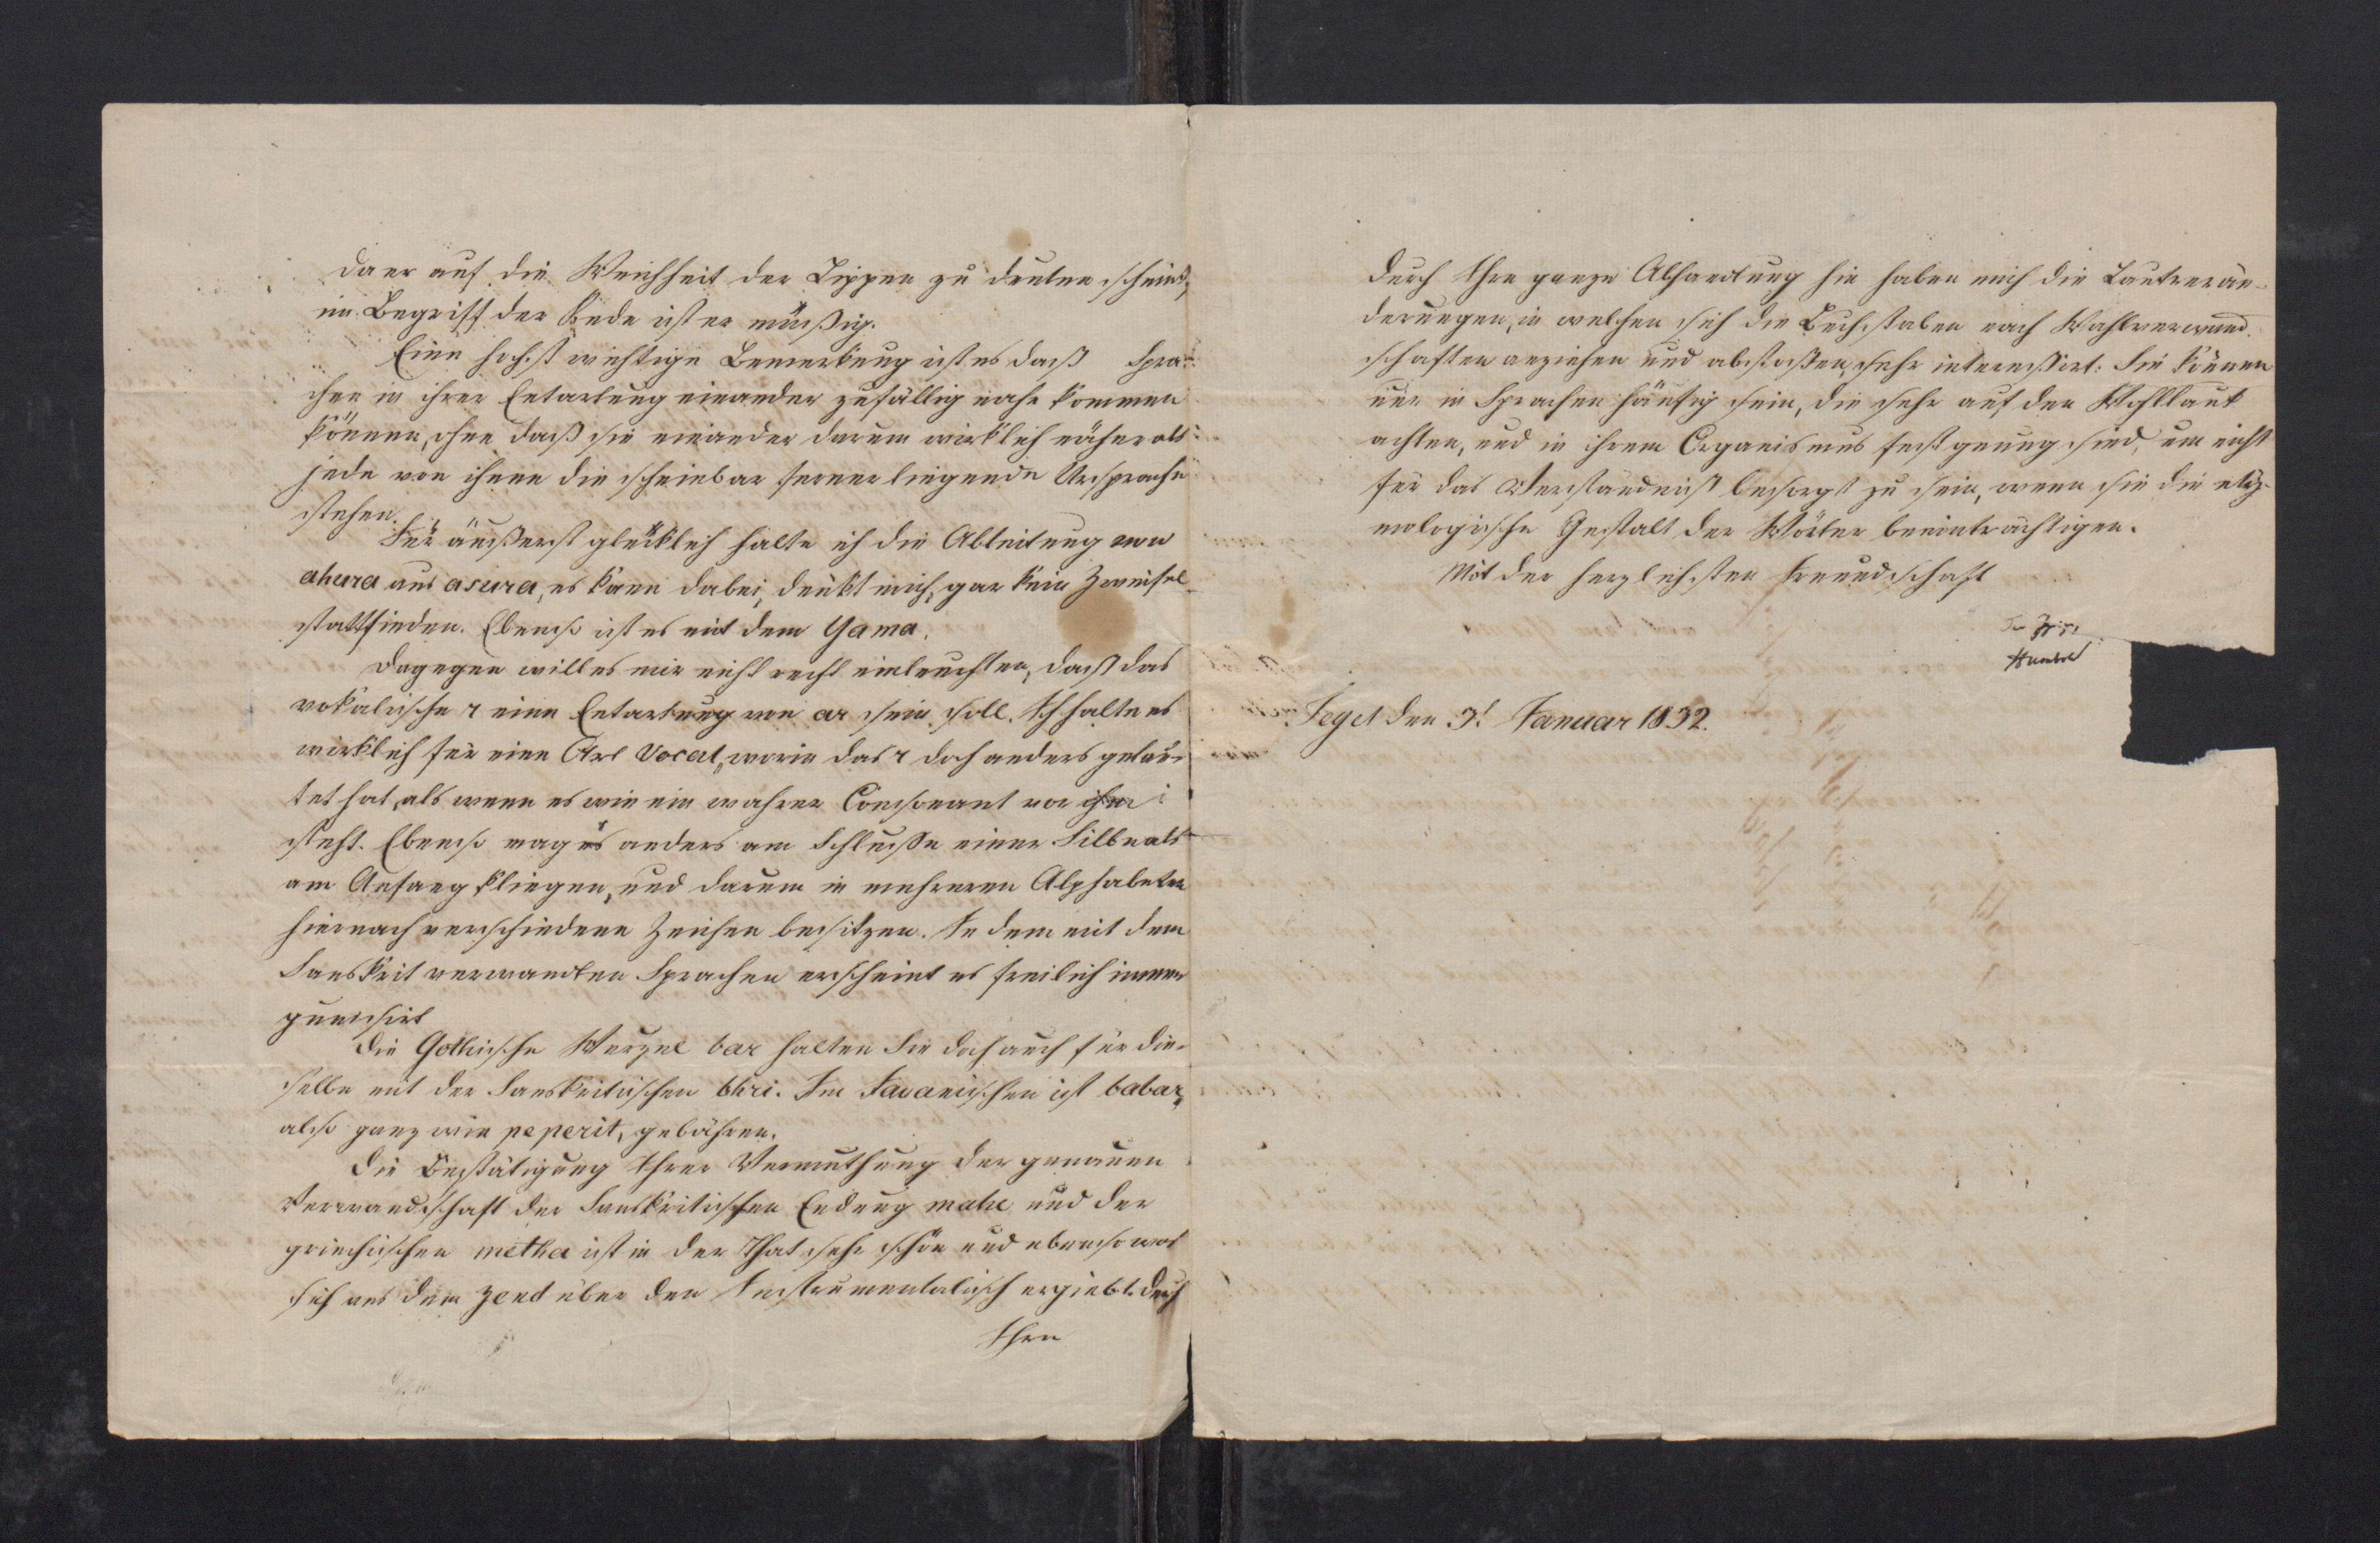 da er auf die Weichheit der Lippen zu deuten scheint,
im Begriff der Rede ist er müßig.
Eine höchst wichtige Bemerkung ist es daß Spra-
chen in ihrer Entartung einander zufällig nahe kommen
können, ohne daß sie einander darum wirklich näher als
jede von ihnen die scheinbar ferner liegende Ursprache
stehen.
Für äußerst glücklich halte ich die Ableitung von
ahura aus asura, es kann dabei, dünkt mich, gar kein Zweifel
stattfinden. Ebenso ist es mit dem Yama.
Dagegen will es mir nicht recht einleuchten, daß das
vokalische r eine Entartung von ar sein soll. Ich halte es
wirklich für eine Art Vocal, worin das r doch anders gelau-
tet hat, als wenn es wie ein wahrer Consonant vor i
steht. Ebenso mag es anders am Schlusse einer Silbe als
am Anfang klingen, und darum in mehreren Alphabeten
hiernach verschiedene Zeichen besitzen. In dem mit dem
Sanskrit verwandten Sprachen erscheint es freilich immer
gunisirt
Die Gothische Wurzel bar halten Sie doch auch für die-
selbe mit der Sanskritischen bhri. Im Javanischen ist babar,
also ganz wie peperit, gebähren.
Die Bestätigung Ihrer Vermuthung der genauen
Verwandschaft der Sanskritischen Endung mahe und der
griechischen metha ist in der That sehr schön und ebenso was
sich aus dem Zend über den Instrumentalis ergiebt. Durch
Ihre
Durch Ihre ganze Abhandlung hin haben mich die Lautverän-
derungen, in welchen sich die Buchstaben nach Wahlverwand-
schaften anziehen und abstoßen, sehr interessirt. Sie können
nur in Sprachen häufig sein, die sehr auf den Wohllaut
achten, und in ihrem Organismus fest genug sind, um nicht
für das Verständniß besorgt zu sein, wenn sie die ety-
mologische Gestalt der Wörter beeinträchtigen.
Mit der herzlichsten Freundschaft
der Ihrige
Humbold
Tegel den 3. Januar 1832.